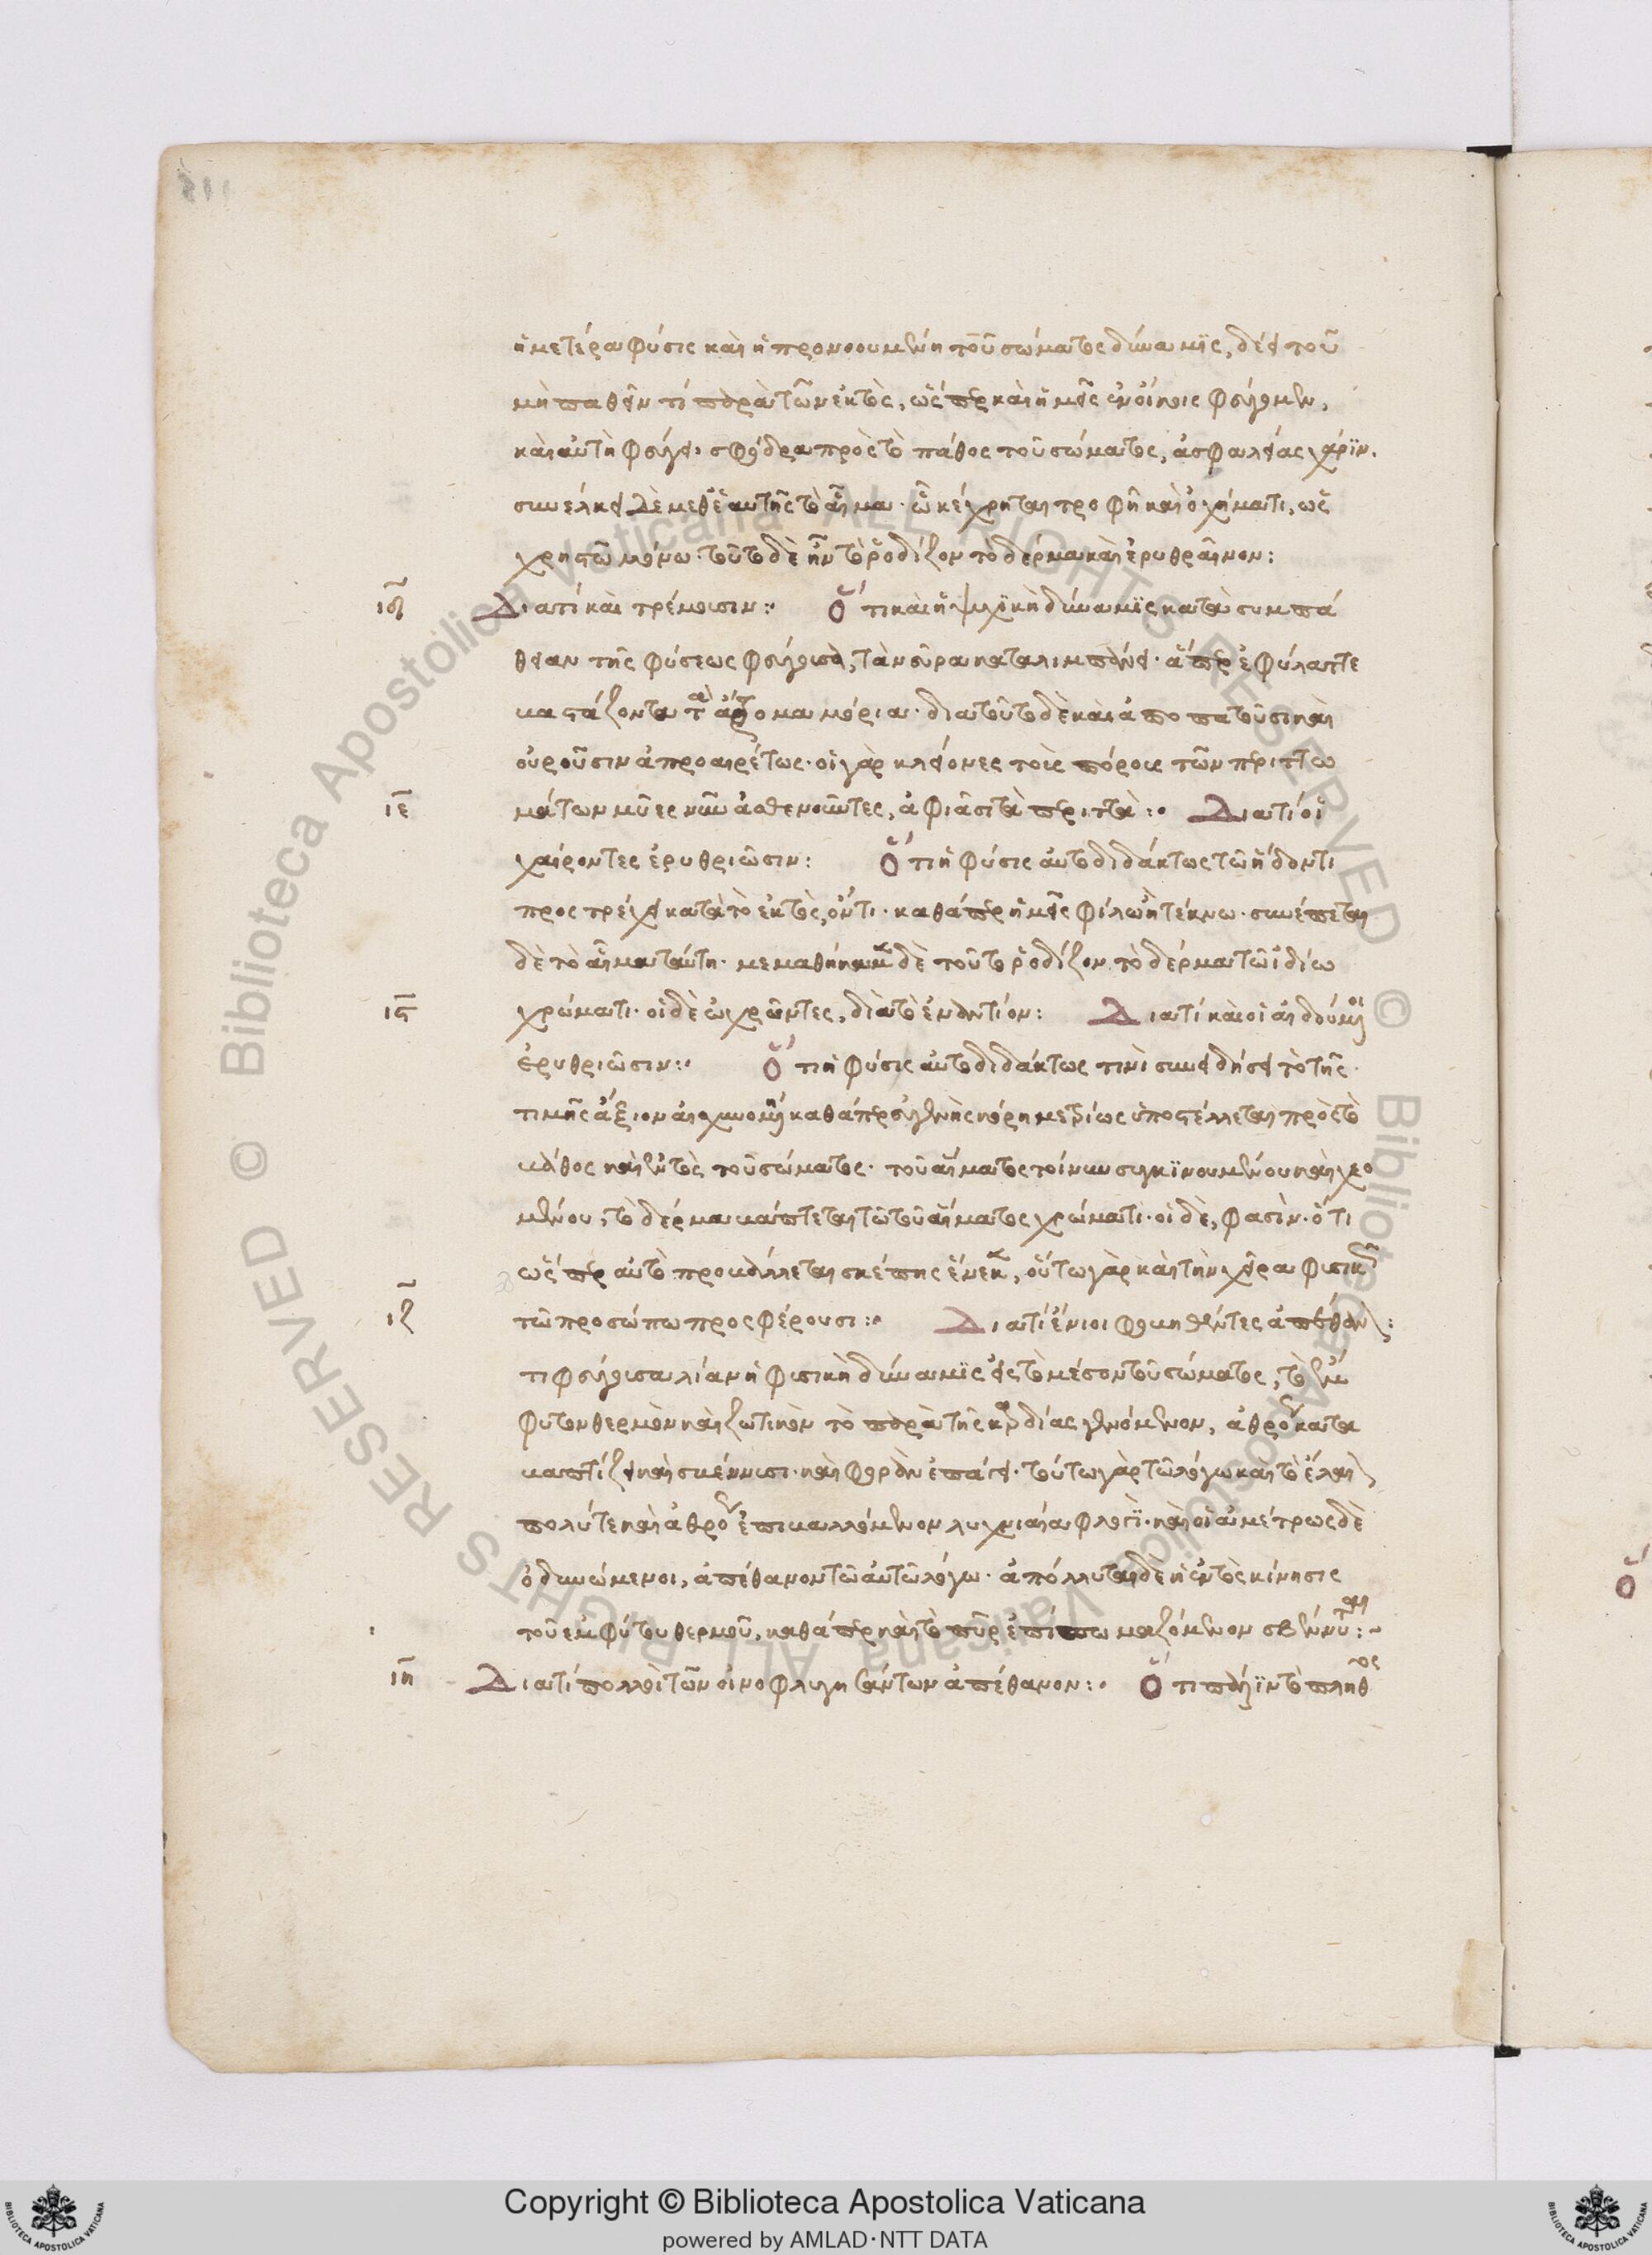 ἡμετέρα φύσις καὶ ἡ προνοουμένη τοῦ σώματος δύναμϊς, δέει τοῦ
μὴ παθεῖν τί παρὰ τῶν ἐκτὸς, ὥσπερ καὶ ἡμεῖς ἐν οἴκοις φεύγομεν,
καὶ αὐτὴ φεύγει σφόδρα πρὸς τὸ πάθος τοῦ σώματος, ἀσφαλείας χάρϊν.
συνέλκει δὲ μεθ' ἑαυτῆς τὸ αἷμα· ᾧ κέχρηται τροφῆ καὶ ὀχήματι, ὡς
χρηστῶ μόνω· τοῦτο δὲ ἦν τὸ ῥοδίζον τὸ δέρμα καὶ ἐρυθραῖνον:
ιδ Διατί καὶ τρέμουσιν: Ὅτι καὶ ἡ ψυχϊκὴ δύναμϊς κατὰ συμπά
θειαν τῆς φύσεως φεύγουσα, τὰ νεῦρα καταλιμπάνει· ἅπερ ἐφύλαττε
βαστάζοντα τὰ ἄρτομα μόρια· διατοῦτο δὲ καὶ ἀποπατοῦσι καὶ
οὐροῦσιν ἀπροαιρέτως· οἱ γὰρ κλείονες τοὶς πόροις τῶν περιττω
ιε μάτων μῦες νῦν ἀσθενοῦντες, ἀφιᾶσι τὰ περιττὰ: Διατί οἱ
χαίροντες ἐρυθριῶσιν: Ὅτι ἡ φύσις αὐτοδιδάκτως τῶ ἥδοντι
προστρέχει κατὰ τὸ ἐκτὸς, ὄντι· καθάπερ ἡμεῖς φίλω ἢ τέκνω· συνέπεται
δὲ τὸ αἷμα ταύτη· μεμαθήκαμεν δὲ τοῦτο ῥοδίζον τὸ δέρμα τῶ ἰδίω
ις χρώματι· οἱ δὲ ὠχρῶντες, διὰ τὸ ἐναντίον: Διατί καὶ οἱ αἰδούμενοι
ἐρυθριῶσιν: Ὅτι ἡ φύσις αὐτοδιδάκτως τινὶ συνειδήσει τὸ τῆς
τιμῆς ἄξιον αἰσχυνομένη καθάπερ εὐγενὴς κόρη μετρίως ὑποστέλλεται πρὸς τὸ
βάθος καὶ ἐντὸς τοῦ σώματος· τοῦ αἵματος τοίνυν συγκϊνουμένου καὶ χεο
μένου, τὸ δέρμα βάπτεται τῶ τοῦ αἵματος χρώματι· οἱ δὲ, φασὶν· ὅτι
ὥσπερ αὐτὸ προβάλλεται σκέπης ἕνεκα, οὕτω γὰρ καὶ τὴν χεῖρα φυσικῶς
ιζ τῶ προσώπω προσφέρουσι: Διατί ἔνιοι φοβηθέντες ἀπέθανον:
τι φεύγουσα λίαν ἡ φυσικὴ δύναμϊς εἰς τὸ μέσον τοῦ σώματος, τὸ ἔμ
φυτον θερμὸν καὶ ζωτικὸν τὸ παρὰ τῆς καρδίας γενόμενον, ἀθρόον κατα
βαπτίζει καὶ σβέννυσι· καὶ φθορὰν ἐπάγει· τούτω γὰρ τῶ λόγω καὶ τὸ ἔλαιον
πολύ τε καὶ ἀθρόον ἐπιβαλλόμενον λυχνιαία φλογΐ· καὶ οἱ ἀμέτρως δὲ
ὀδυνώμενοι, ἀπέθανον τῶ αὐτῶ λόγω· ἀπόλλυται δὲ ἡ ἐντὸς κίνησις
τοῦ ἐμφύτου θερμοῦ, καθάπερ καὶ τὸ πῦρ ἐπιπωμαζόμενον σβέννυται:
ιη Διατί πολλοὶ τῶν οἰνοφλυγησάντων ἀπέθανον: Ὅτι πάλϊν τὸ πλῆθος